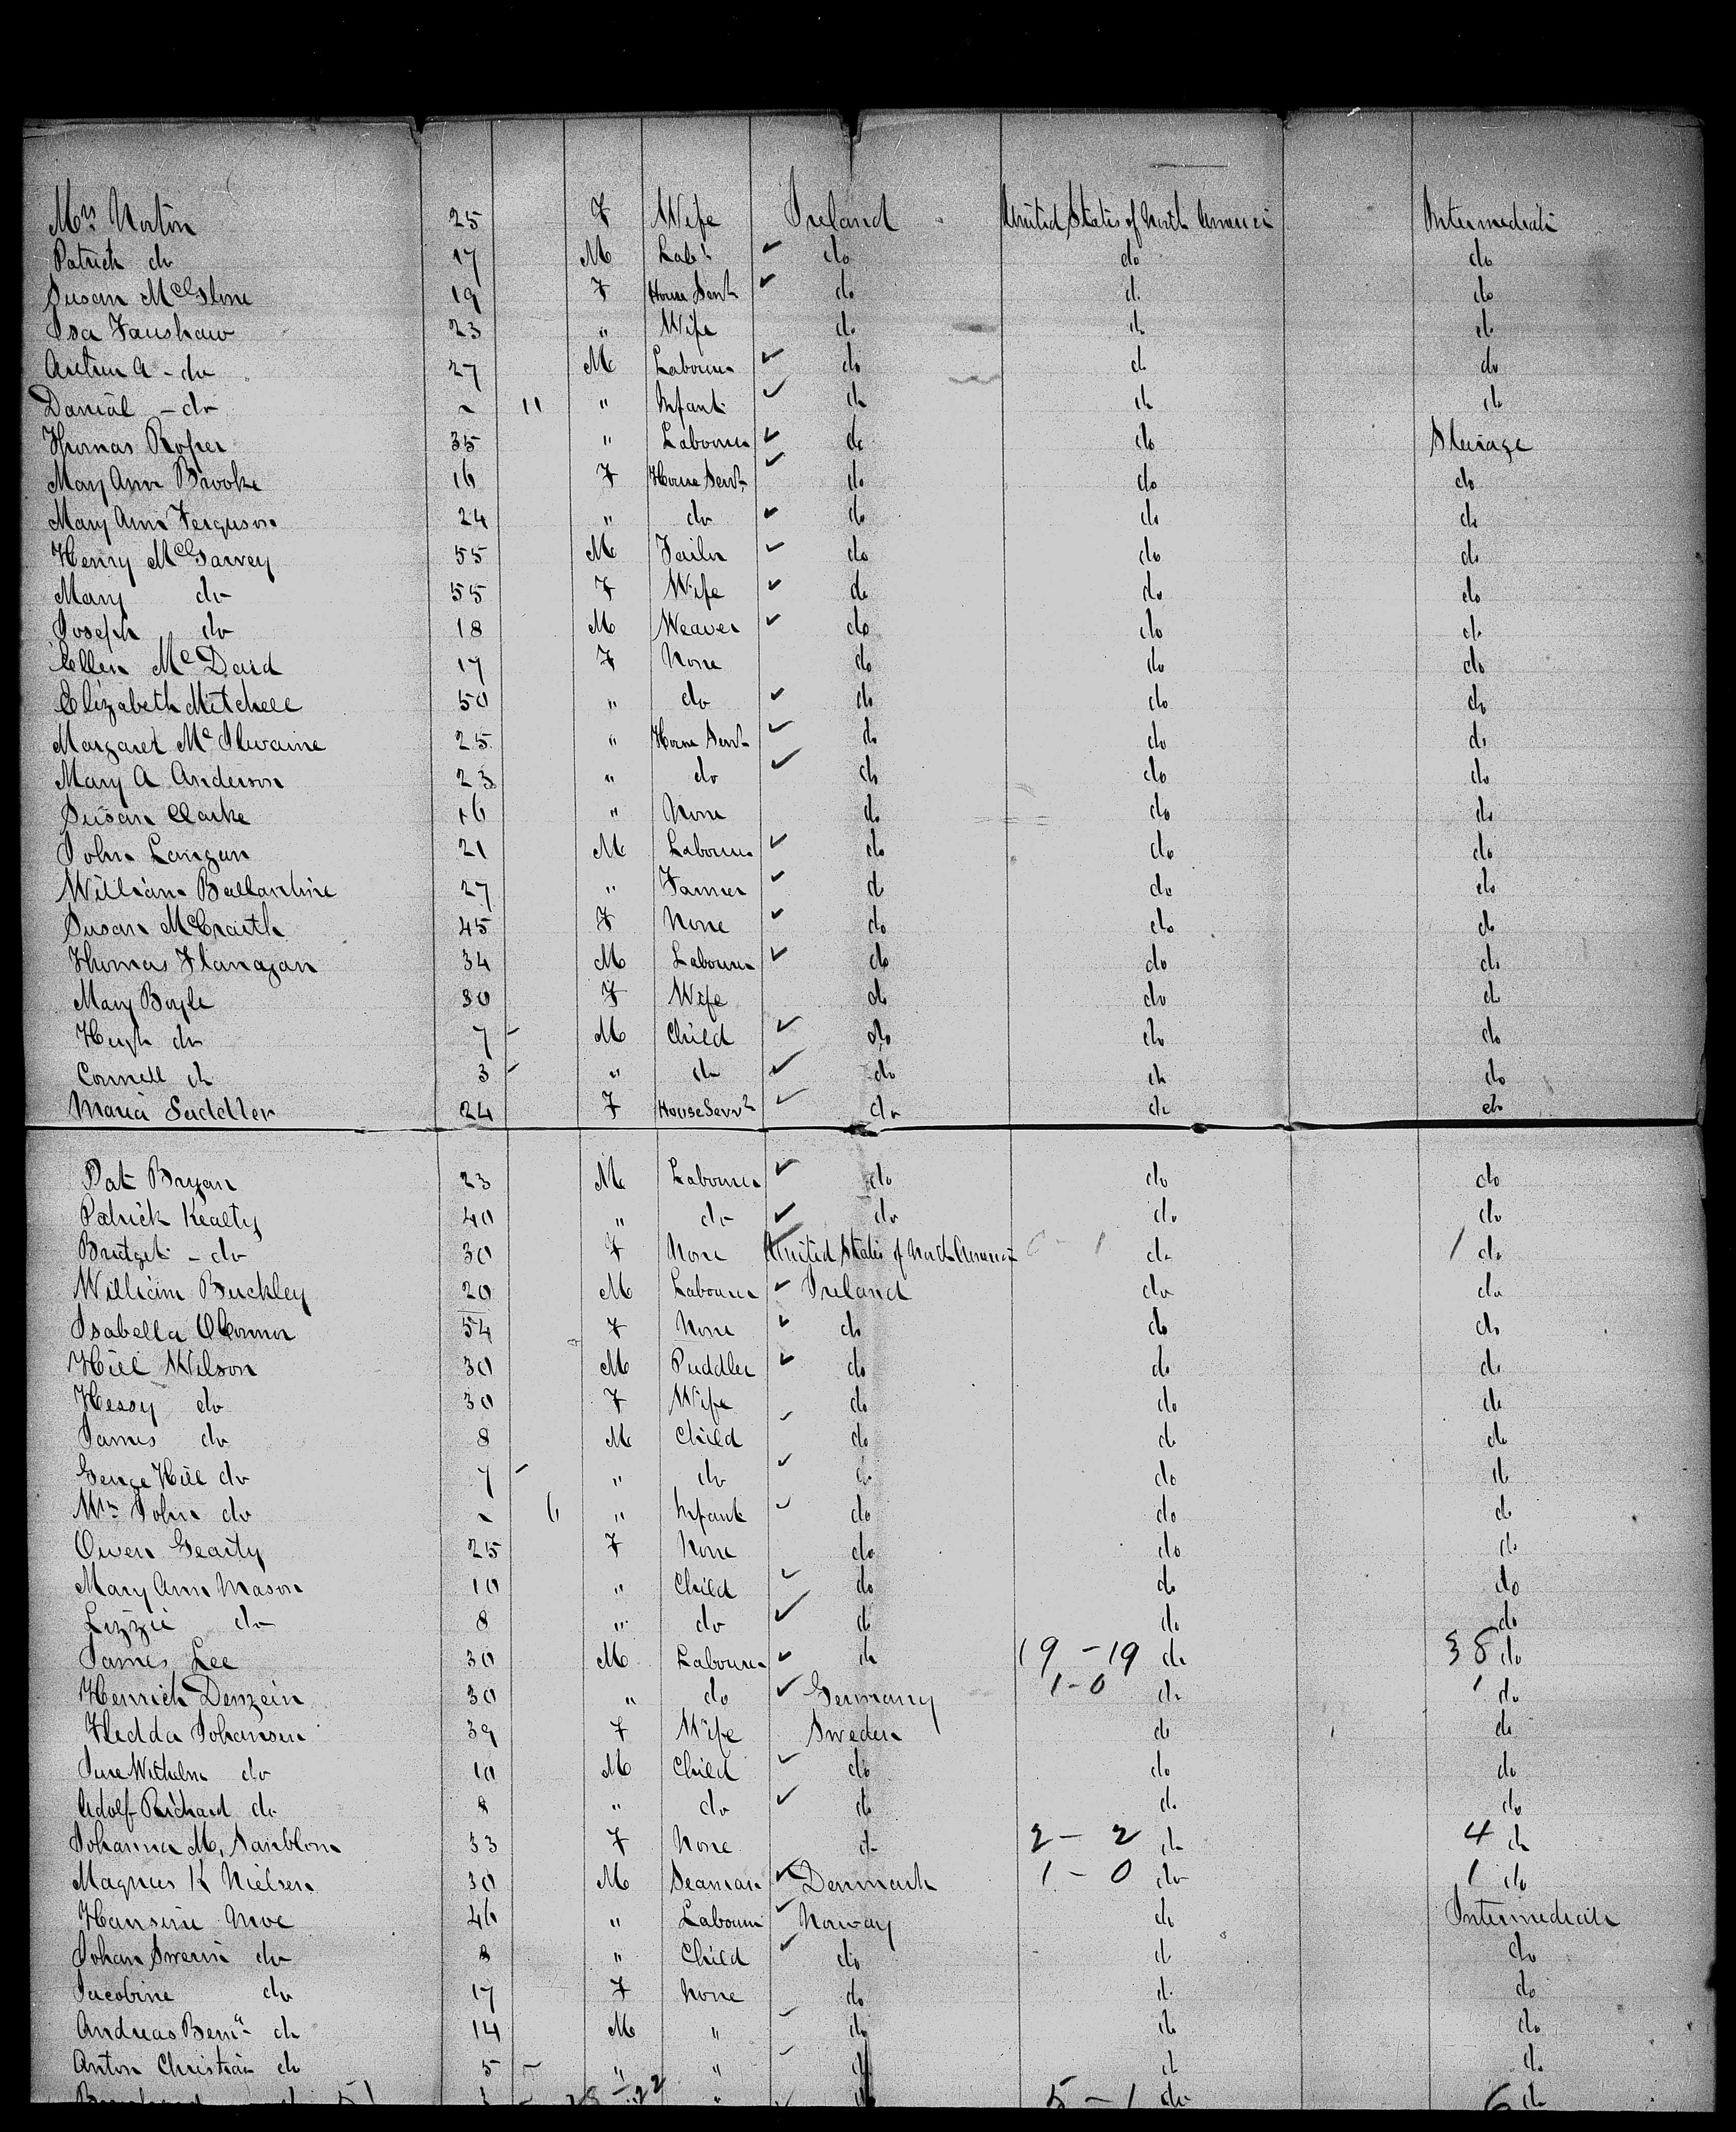 Mrs Norton 25 F Wife Ireland United States of North America Intermediate
Patrick do 17 M Labr ✓ do do do
Susan McGlone 19 F House Servt ✓ do do do
Isa Fanshaw 23 " Wife do do do
Arthur A - do 27 M Labourer ✓ do do do
Danial - do 11 " Infant ✓ do do do
Thomas Roper 35 " Labourer ✓ do do Steerage
Mary Ann Brooke 16 F House Servt ✓ do do do
Mary Ann Ferguson 24 " do ✓ do do do
Henry McGarvey 55 M Tailor ✓ do do do
Mary do 55 F Wife ✓ do do do
Joseph do 18 M Weaver ✓ do do do
Ellen McDaid 17 F None do do do
Elizabeth Mitchell 50 " do ✓ do do do
Margaret McIlwaine 25 " House Servt ✓ do do do
Mary A Anderson 23 " do ✓ do do do
Susan Clarke 16 " None do do do
John Langan 21 M Labourer ✓ do do do
William Ballantine 27 " Farmer ✓ do do do
Susan McCraith 45 F None ✓ do do do
Thomas Flanagan 34 M Labourer ✓ do do do
Mary Boyle 30 F Wife do do do
Hugh do 7 - M Child ✓ do do do
Connell do 3 - " do ✓ do do do
Maria Saddler 24 F House Servt ✓ do do do
Pat Bryan 23 M Labourer ✓ do do do
Patrick Kealty 40 " do ✓ do do do
Bridget - do 30 F None United States of North America 0 - 1 do 1 do
William Buckley 20 M Labourer ✓ Ireland do do
Isabella OConnor 54 F None ✓ do do do
Hill Wilson 30 M Puddler ✓ do do do
Hessy do 30 F Wife do do do
James do 8 M Child ✓ do do do
George Hill do 7 - " do ✓ do do do
Wm John do 6 " Infant ✓ do do do
Owen Gearty 25 F None do do do
Mary Ann Mason 10 " Child ✓ do do do
Lizzie do 8 " do ✓ do do do
James Lee 30 M Labourer ✓ do 19 - 19 do 38 do
Henrich Denzein 30 " do ✓ Germany 1 - 0 do 1 do
Hedda Johansen 39 F Wife Sweden do do
Wilhelm do 10 M Child ✓ do do do
Adolf Richard do 8 " do ✓ do do do
Johanna M. 33 F None do 2 - 2 do 4 do
Magnus K Nielsen 30 M Seaman ✓ Denmark 1 - 0 do 1 do
Hansine Moe 46 " Labourer ✓ Norway do Intermediate
Johan do 8 " Child ✓ do do do
Jacobine do 17 F None do do do
Andreas do 14 M " ✓ do do do
Anton Christian do 5 - " " ✓ do do do
do 5 - 1 do 6 do